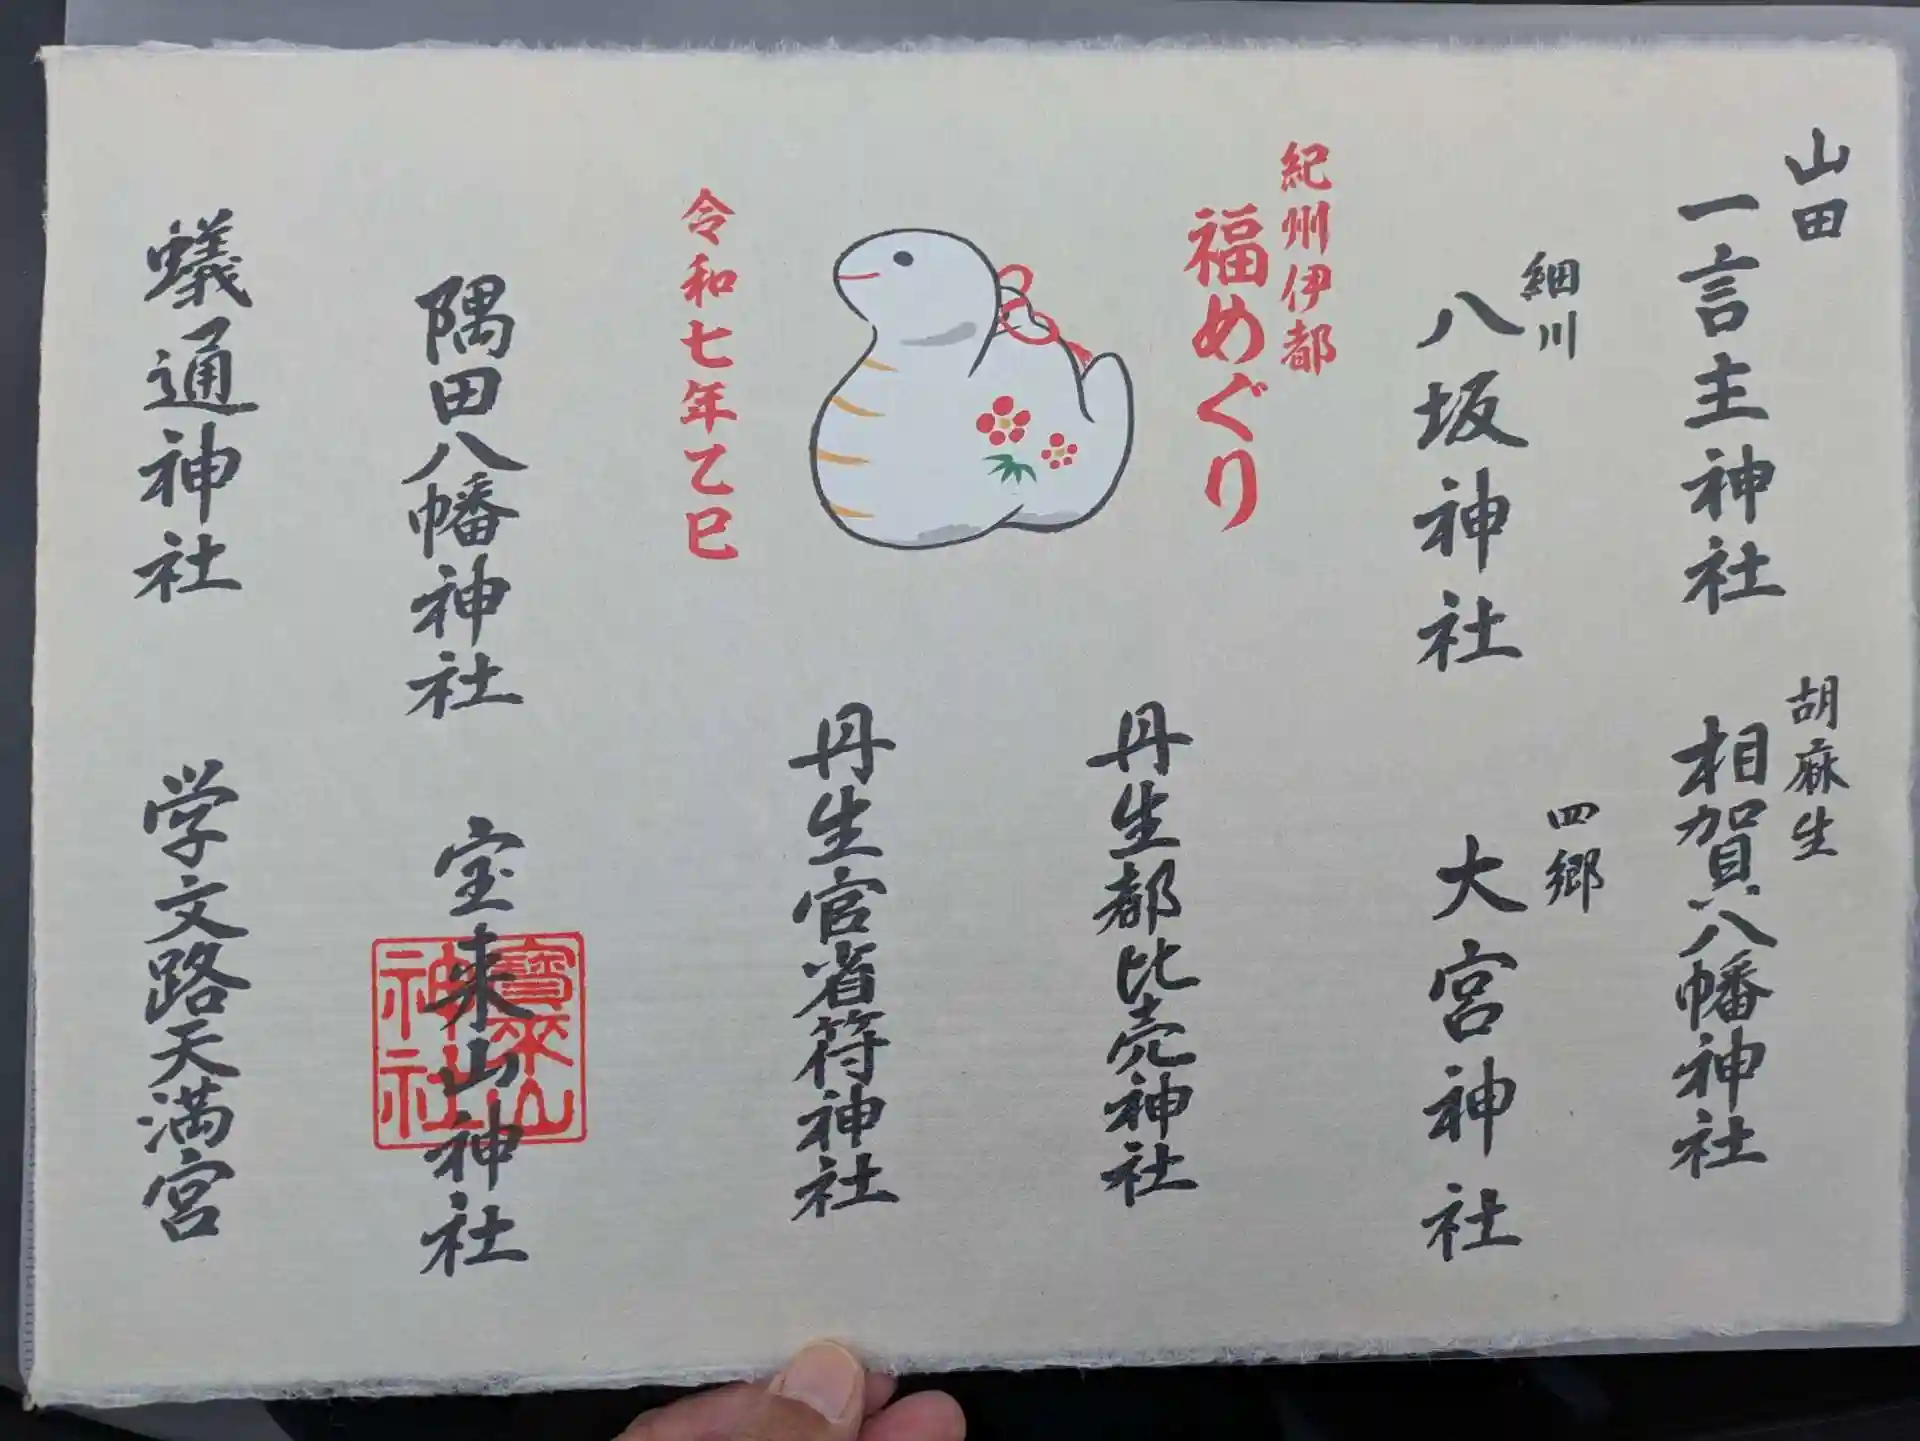 山田
一言主神社
胡麻生
相賀八幡神社
細川
八坂神社
四郷
大宮神社
紀州伊都
福めぐり
令和七年乙巳
丹生都比売神社
丹生官省符神社
隅田八幡神社
宝来山神社
寶来山
神社
蟻通神社
学文路天満宮